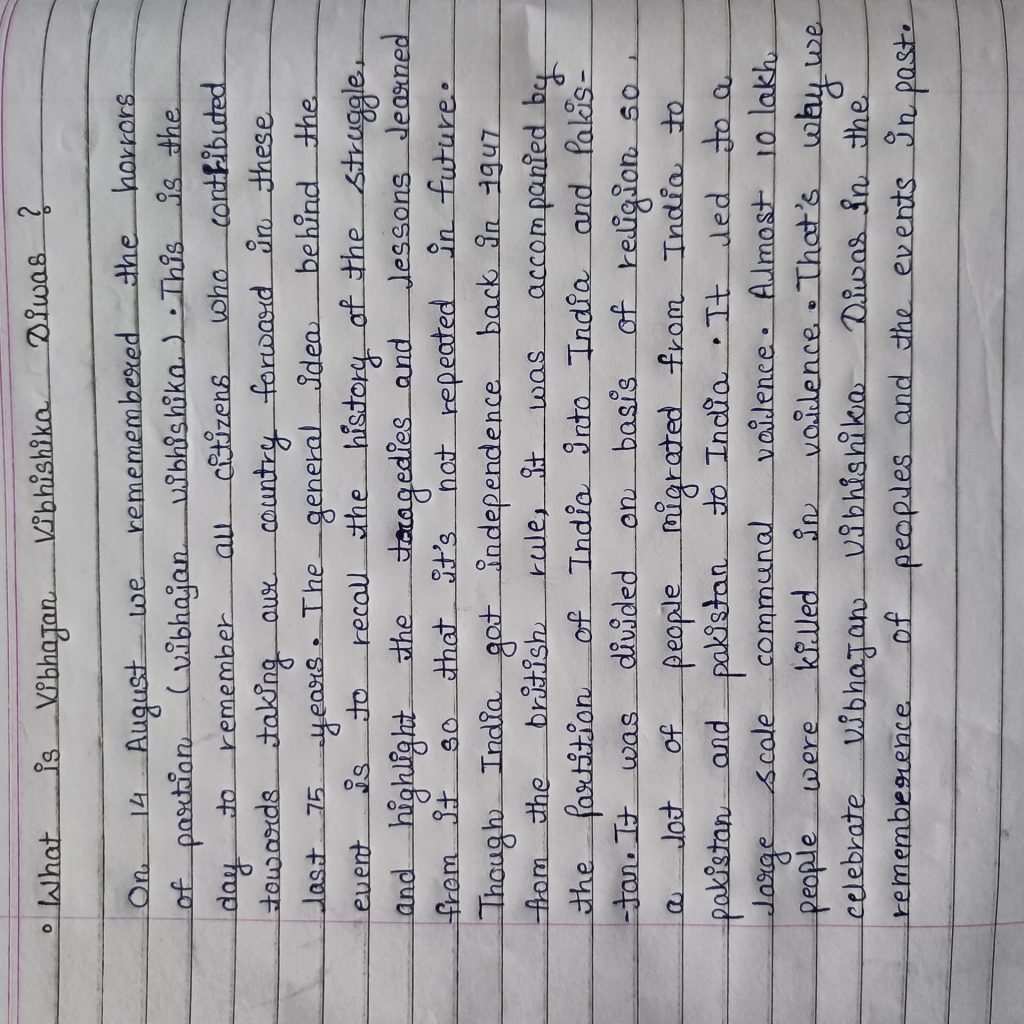 • What is Vibhajan Vibhishika Diwas ?
On 14 August we remembered the horrors
of partion (vibhajan vibhishika). This is the
day to remember all citizens who contributed
towards taking our country forward in these
last 75 years. The general idea behind the
event is to recall the history of the struggle,
and highlight the tragedies and lessons learned
from it so that it's not repeated in future.
Though India got independence back in 1947
from the british rule, it was accompanied by
the Partition of India into India and Pakis-
-tan. It was divided on basis of religion so,
a lot of people migrated from India to
pakistan and pakistan to India. It led to a
large scale communal vailence. Almost 10 lakh
people were killed in vailence. That's why we
celebrate vibhajan vibhishika Diwas in the
rememberence of peoples and the events in past.